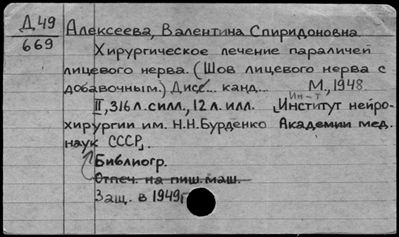 Д 49
669
Алексеева, Валентина Спиридоновна
Хирургическое лечение параличей
лицевого нерва. (Шов лицевого нерва с
добавочным.) Дисс... канд... М., 1948
II, 316 л. силл., 12 л. илл. Ин-т [Институт нейро-
хирургии им. Н.Н.Бурденко Академии мед.
наук СССР].
Библиогр.
Отпеч. на пиш. маш.
Защ. в 1949г